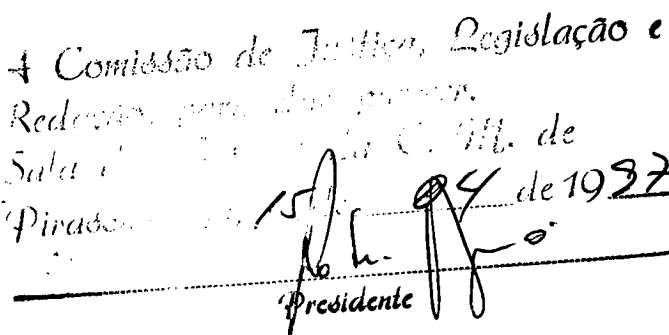 A Comissão de Justiça, Legislação e
Redação, para dar parecer.
Sala da C. M. de
15 04 de 1997
Presidente